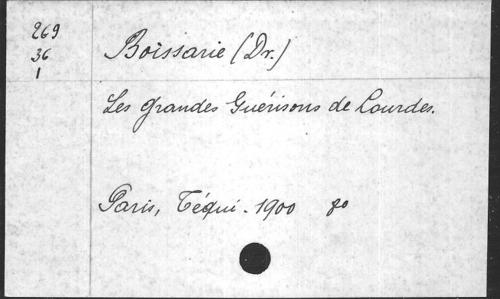 269
36
1
Boissarie (Dr.)
Les grandes Guérisons de Lourdes.
Paris, Téqui. 1900 8o